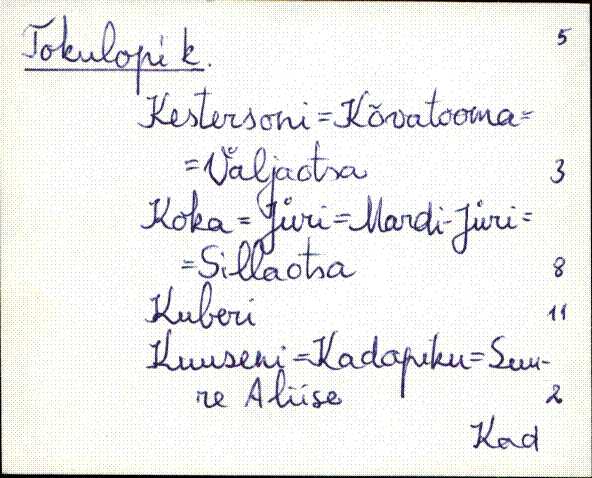 Tokulopi k. 5
Kestersoni = Kõvatooma =
= Väljaotsa 3
Koka = Jüri = Mardi-Jüri =
= Sillaotsa 8
Kuberi 11
Kuuseni = Kadapiku = Suu-
re Aliise 2
Kad